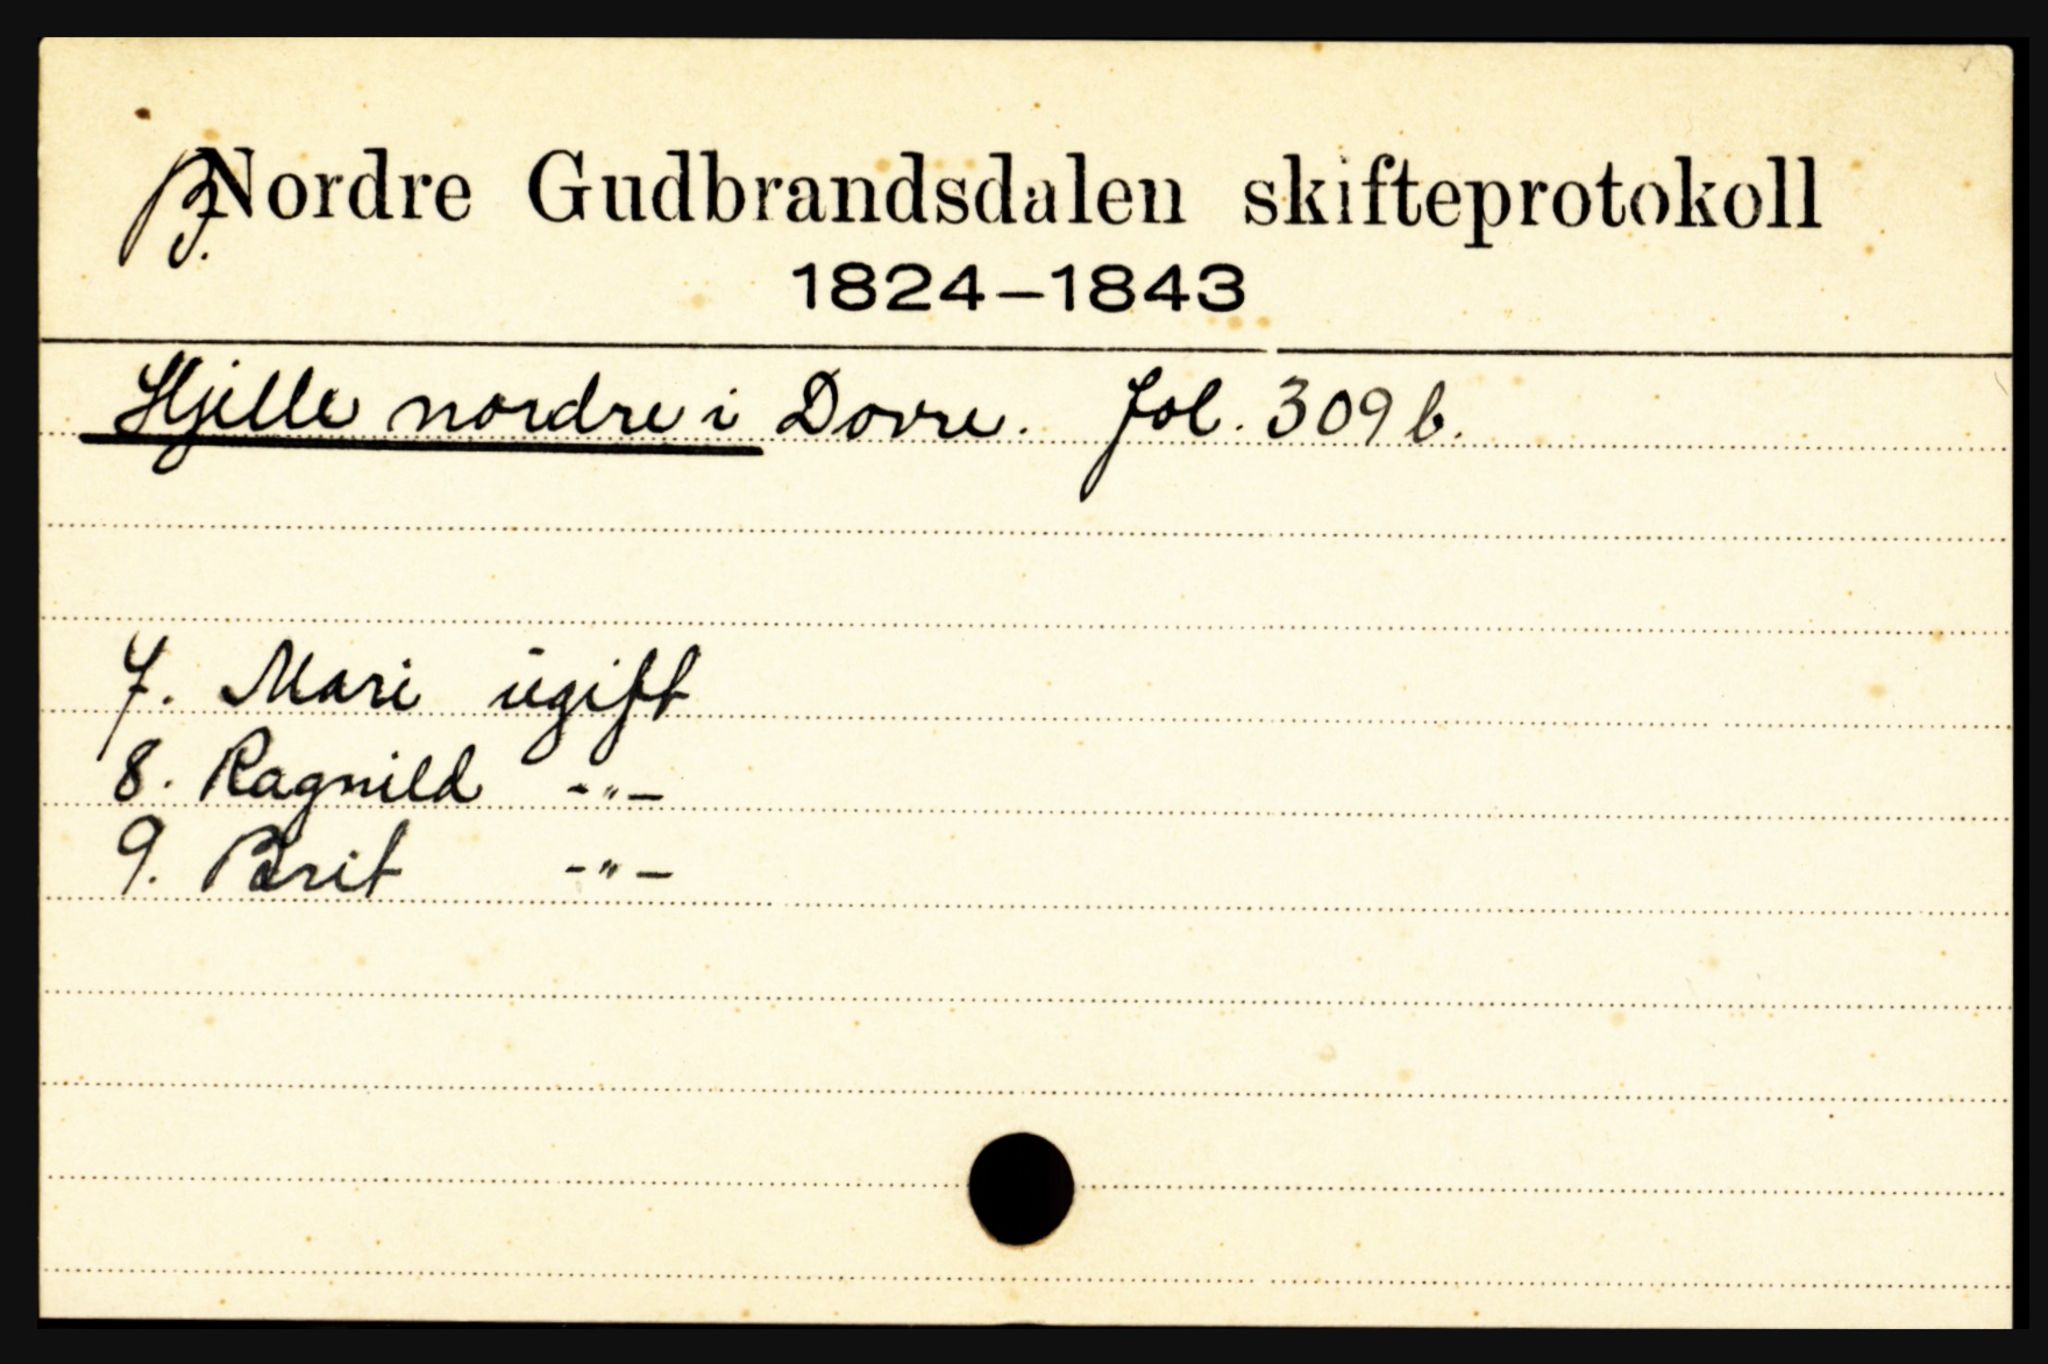 B. Nordre Gudbrandsdalen skifteprotokoll
1824-1843
Hjelle nordre i Dovre. Fol. 309 b.
7. Mari ugift
8. Ragnild -"-
9. Brit -"-